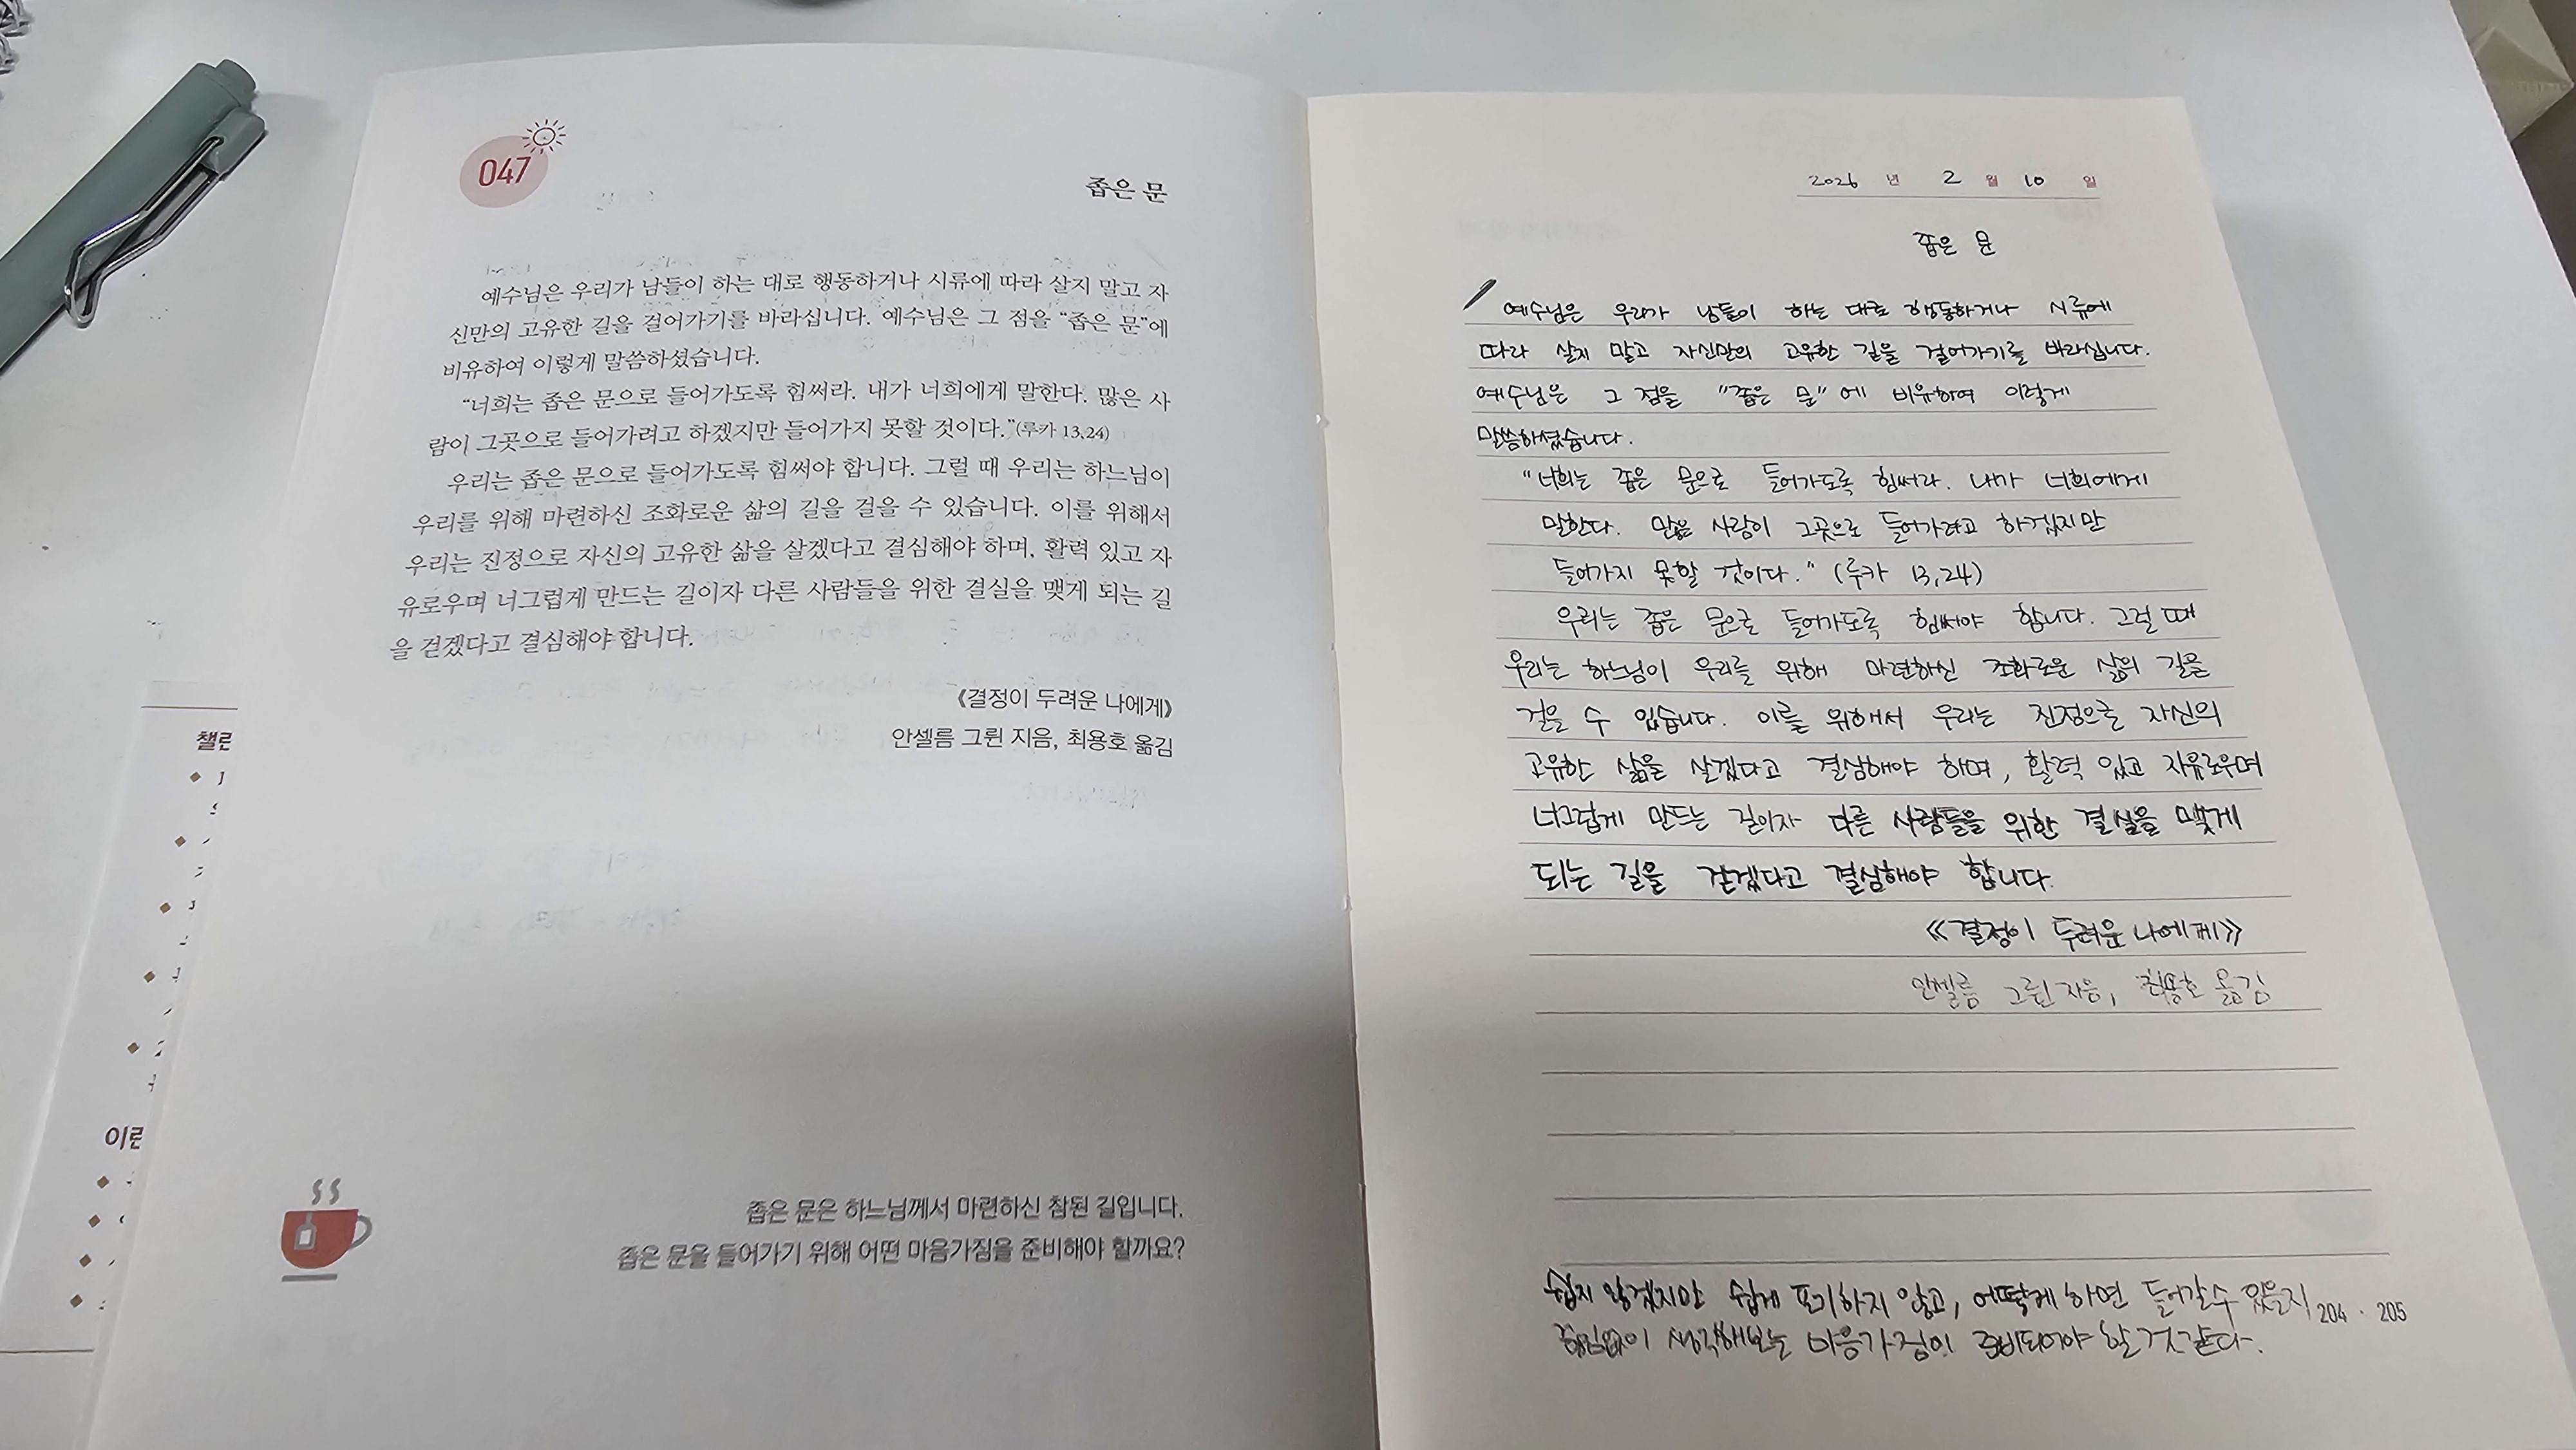 047
좁은 문
예수님은 우리가 남들이 하는 대로 행동하거나 시류에 따라 살지 말고 자
신만의 고유한 길을 걸어가기를 바라십니다. 예수님은 그 점을 “좁은 문”에
비유하여 이렇게 말씀하셨습니다.
“너희는 좁은 문으로 들어가도록 힘써라. 내가 너희에게 말한다. 많은 사
람이 그곳으로 들어가려고 하겠지만 들어가지 못할 것이다.”(루카 13,24)
우리는 좁은 문으로 들어가도록 힘써야 합니다. 그럴 때 우리는 하느님이
우리를 위해 마련하신 조화로운 삶의 길을 걸을 수 있습니다. 이를 위해서
우리는 진정으로 자신의 고유한 삶을 살겠다고 결심해야 하며, 활력 있고 자
유로우며 너그럽게 만드는 길이자 다른 사람들을 위한 결실을 맺게 되는 길
을 걷겠다고 결심해야 합니다.
《결정이 두려운 나에게》
안셀름 그륀 지음, 최용호 옮김
좁은 문은 하느님께서 마련하신 참된 길입니다.
좁은 문을 들어가기 위해 어떤 마음가짐을 준비해야 할까요?
챌린
이런
2026 년 2 월 10 일
좁은 문
예수님은 우리가 남들이 하는 대로 행동하거나 시류에
따라 살지 말고 자신만의 고유한 길을 걸어가기를 바라십니다.
예수님은 그 점을 “좁은 문”에 비유하여 이렇게
말씀하셨습니다.
“너희는 좁은 문으로 들어가도록 힘써라. 내가 너희에게
말한다. 많은 사람이 그곳으로 들어가려고 하겠지만
들어가지 못할 것이다.” (루카 13,24)
우리는 좁은 문으로 들어가도록 힘써야 합니다. 그럴 때
우리는 하느님이 우리를 위해 마련하신 조화로운 삶의 길을
걸을 수 있습니다. 이를 위해서 우리는 진정으로 자신의
고유한 삶을 살겠다고 결심해야 하며, 활력 있고 자유로우며
너그럽게 만드는 길이자 다른 사람들을 위한 결실을 맺게
되는 길을 걷겠다고 결심해야 합니다.
《결정이 두려운 나에게》
안셀름 그륀 지음, 최용호 옮김
쉽지 않겠지만 쉽게 포기하지 않고, 어떻게 하면 들어갈수 있을지
끊임없이 생각해보는 마음가짐이 준비되어야 할 것 같다.
204 · 205